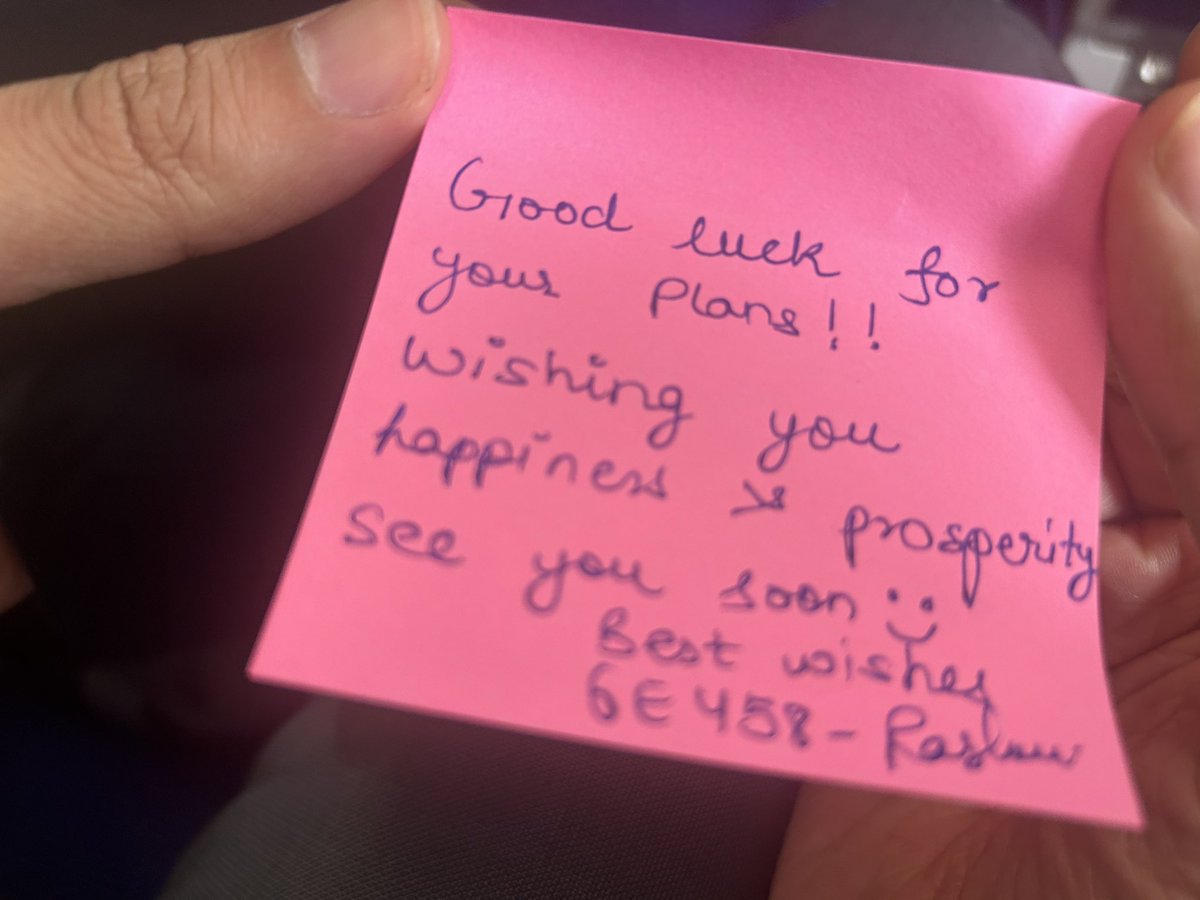 Good luck for
your Plans!!
Wishing you
happiness & prosperity
See you soon :)
Best wishes
6E 458 -